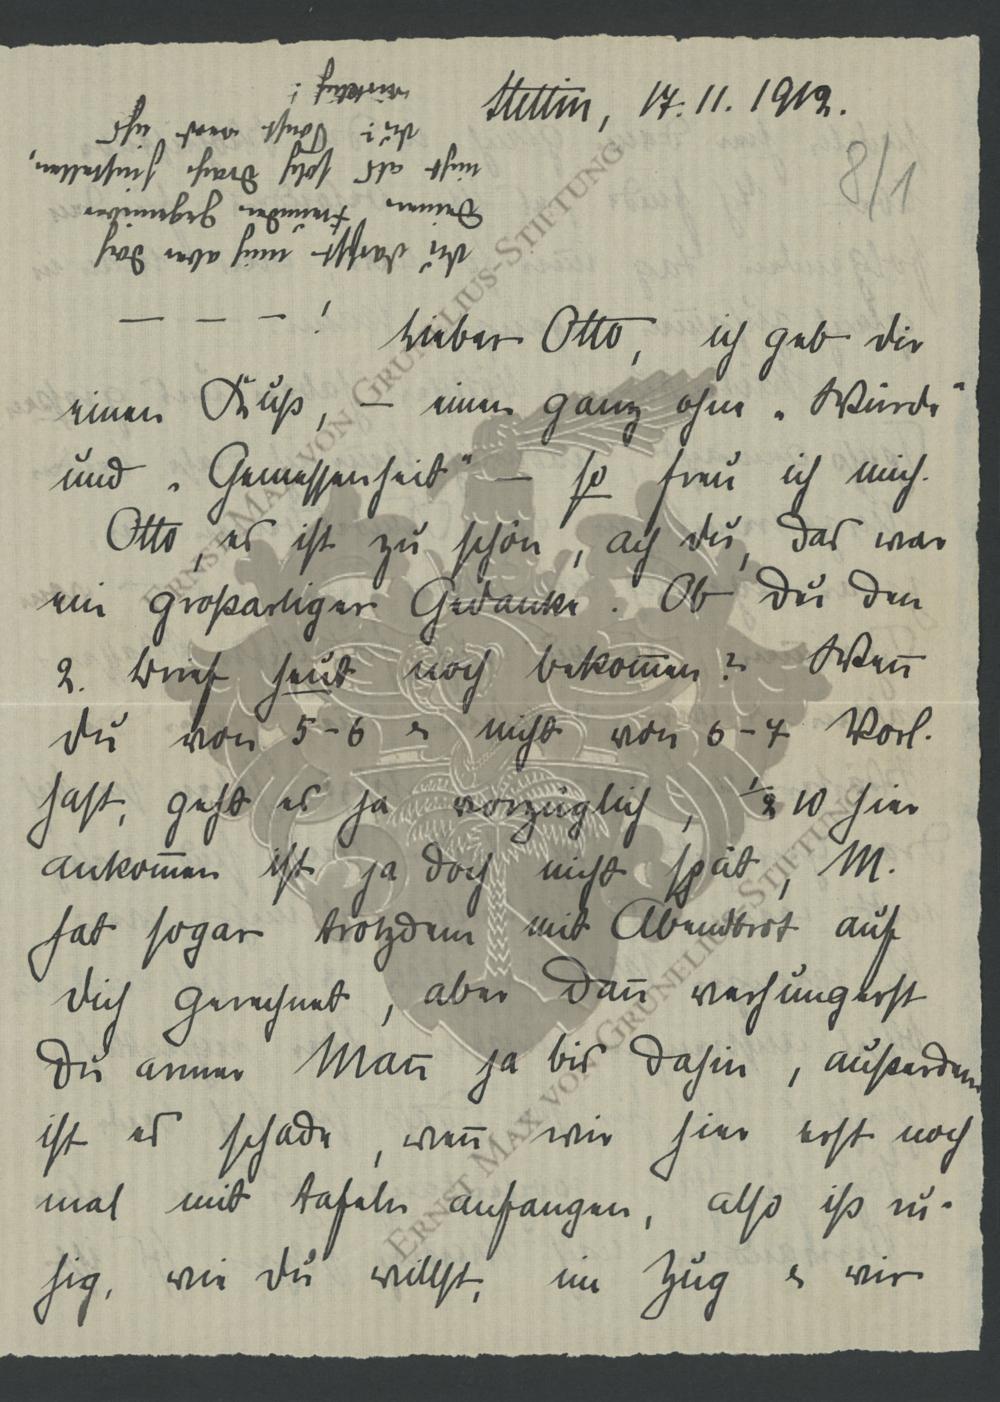 Stettin, 17.11.1912.
8/1
Lieber Otto, ich geb dir
einen Kuß, – einen ganz ohne „Würde"
und „Gemessenheit" – so freu ich mich.
Otto, es ist zu schön, ach du, das war
ein großartiger Gedanke. Ob Du den
2. Brief heut noch bekommen? Wenn
du von 5-6 & nicht von 6-7 Vorl.
hast, geht es ja vorzüglich, 1/2 10 hier
ankommen ist ja doch nicht spät, M.
hat sogar trotzdem mit Abendbrot auf
dich gerechnet, aber dann verhungerst
Du armer Mann ja bis dahin, außerdem
ist es schade, wenn wir hier erst noch
mal mit tafeln anfangen, also iß ru-
hig, wie du willst, im Zug & wir
Du darfst mich aber doch
Deinen Freunden gegenüber
nicht als solch Drache hinstellen,
du! Sonst werd ich's
wirklich!
– – – !
ERNST MAX VON GRUNELIUS-STIFTUNG
ERNST MAX VON GRUNELIUS-STIFTUNG